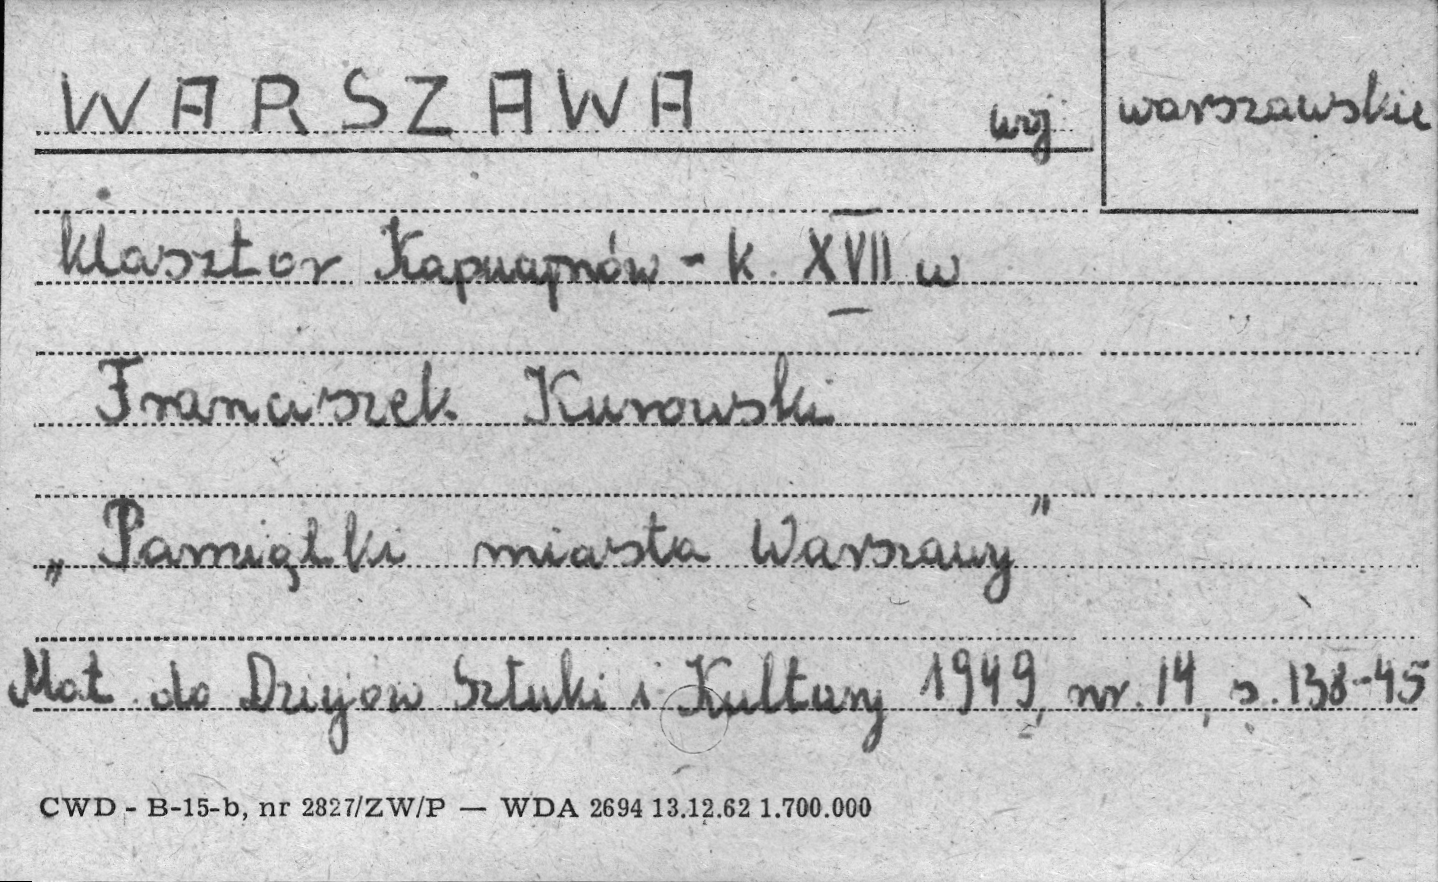 WARSZAWA woj warszawskie
klasztor Kapucynów - k. XVII w
Franciszek Kurowski
„Pamiątki miasta Warszawy”
Mat. do Dziejów Sztuki i Kultury 1949, nr. 14, s. 138-45
CWD - B-15-b, nr 2827/ZW/P — WDA 2694 13.12.62 1.700.000